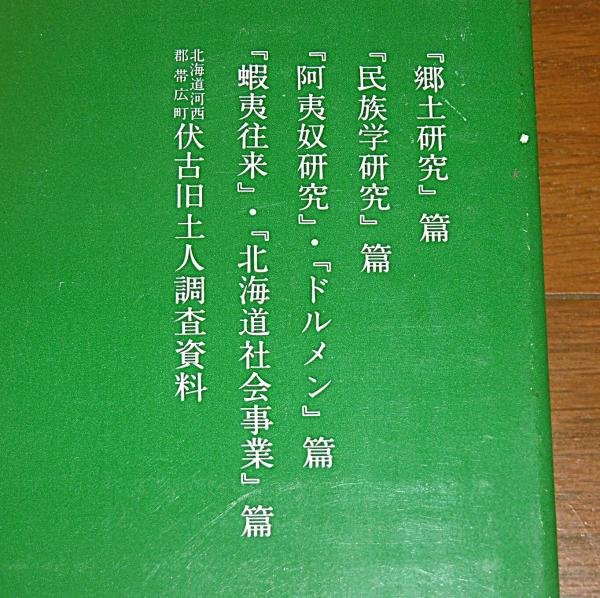 『郷土研究』篇
『民族学研究』篇
『阿夷奴研究』・『ドルメン』篇
『蝦夷往来』・『北海道社会事業』篇
北海道河西
郡帯広町
伏古旧土人調査資料